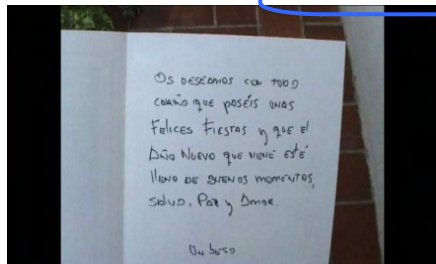 Os deseamos con todo
cariño que paséis unas
Felices Fiestas y que el
Año Nuevo que viene esté
lleno de buenos momentos,
salud, Paz y Amor.
Un beso